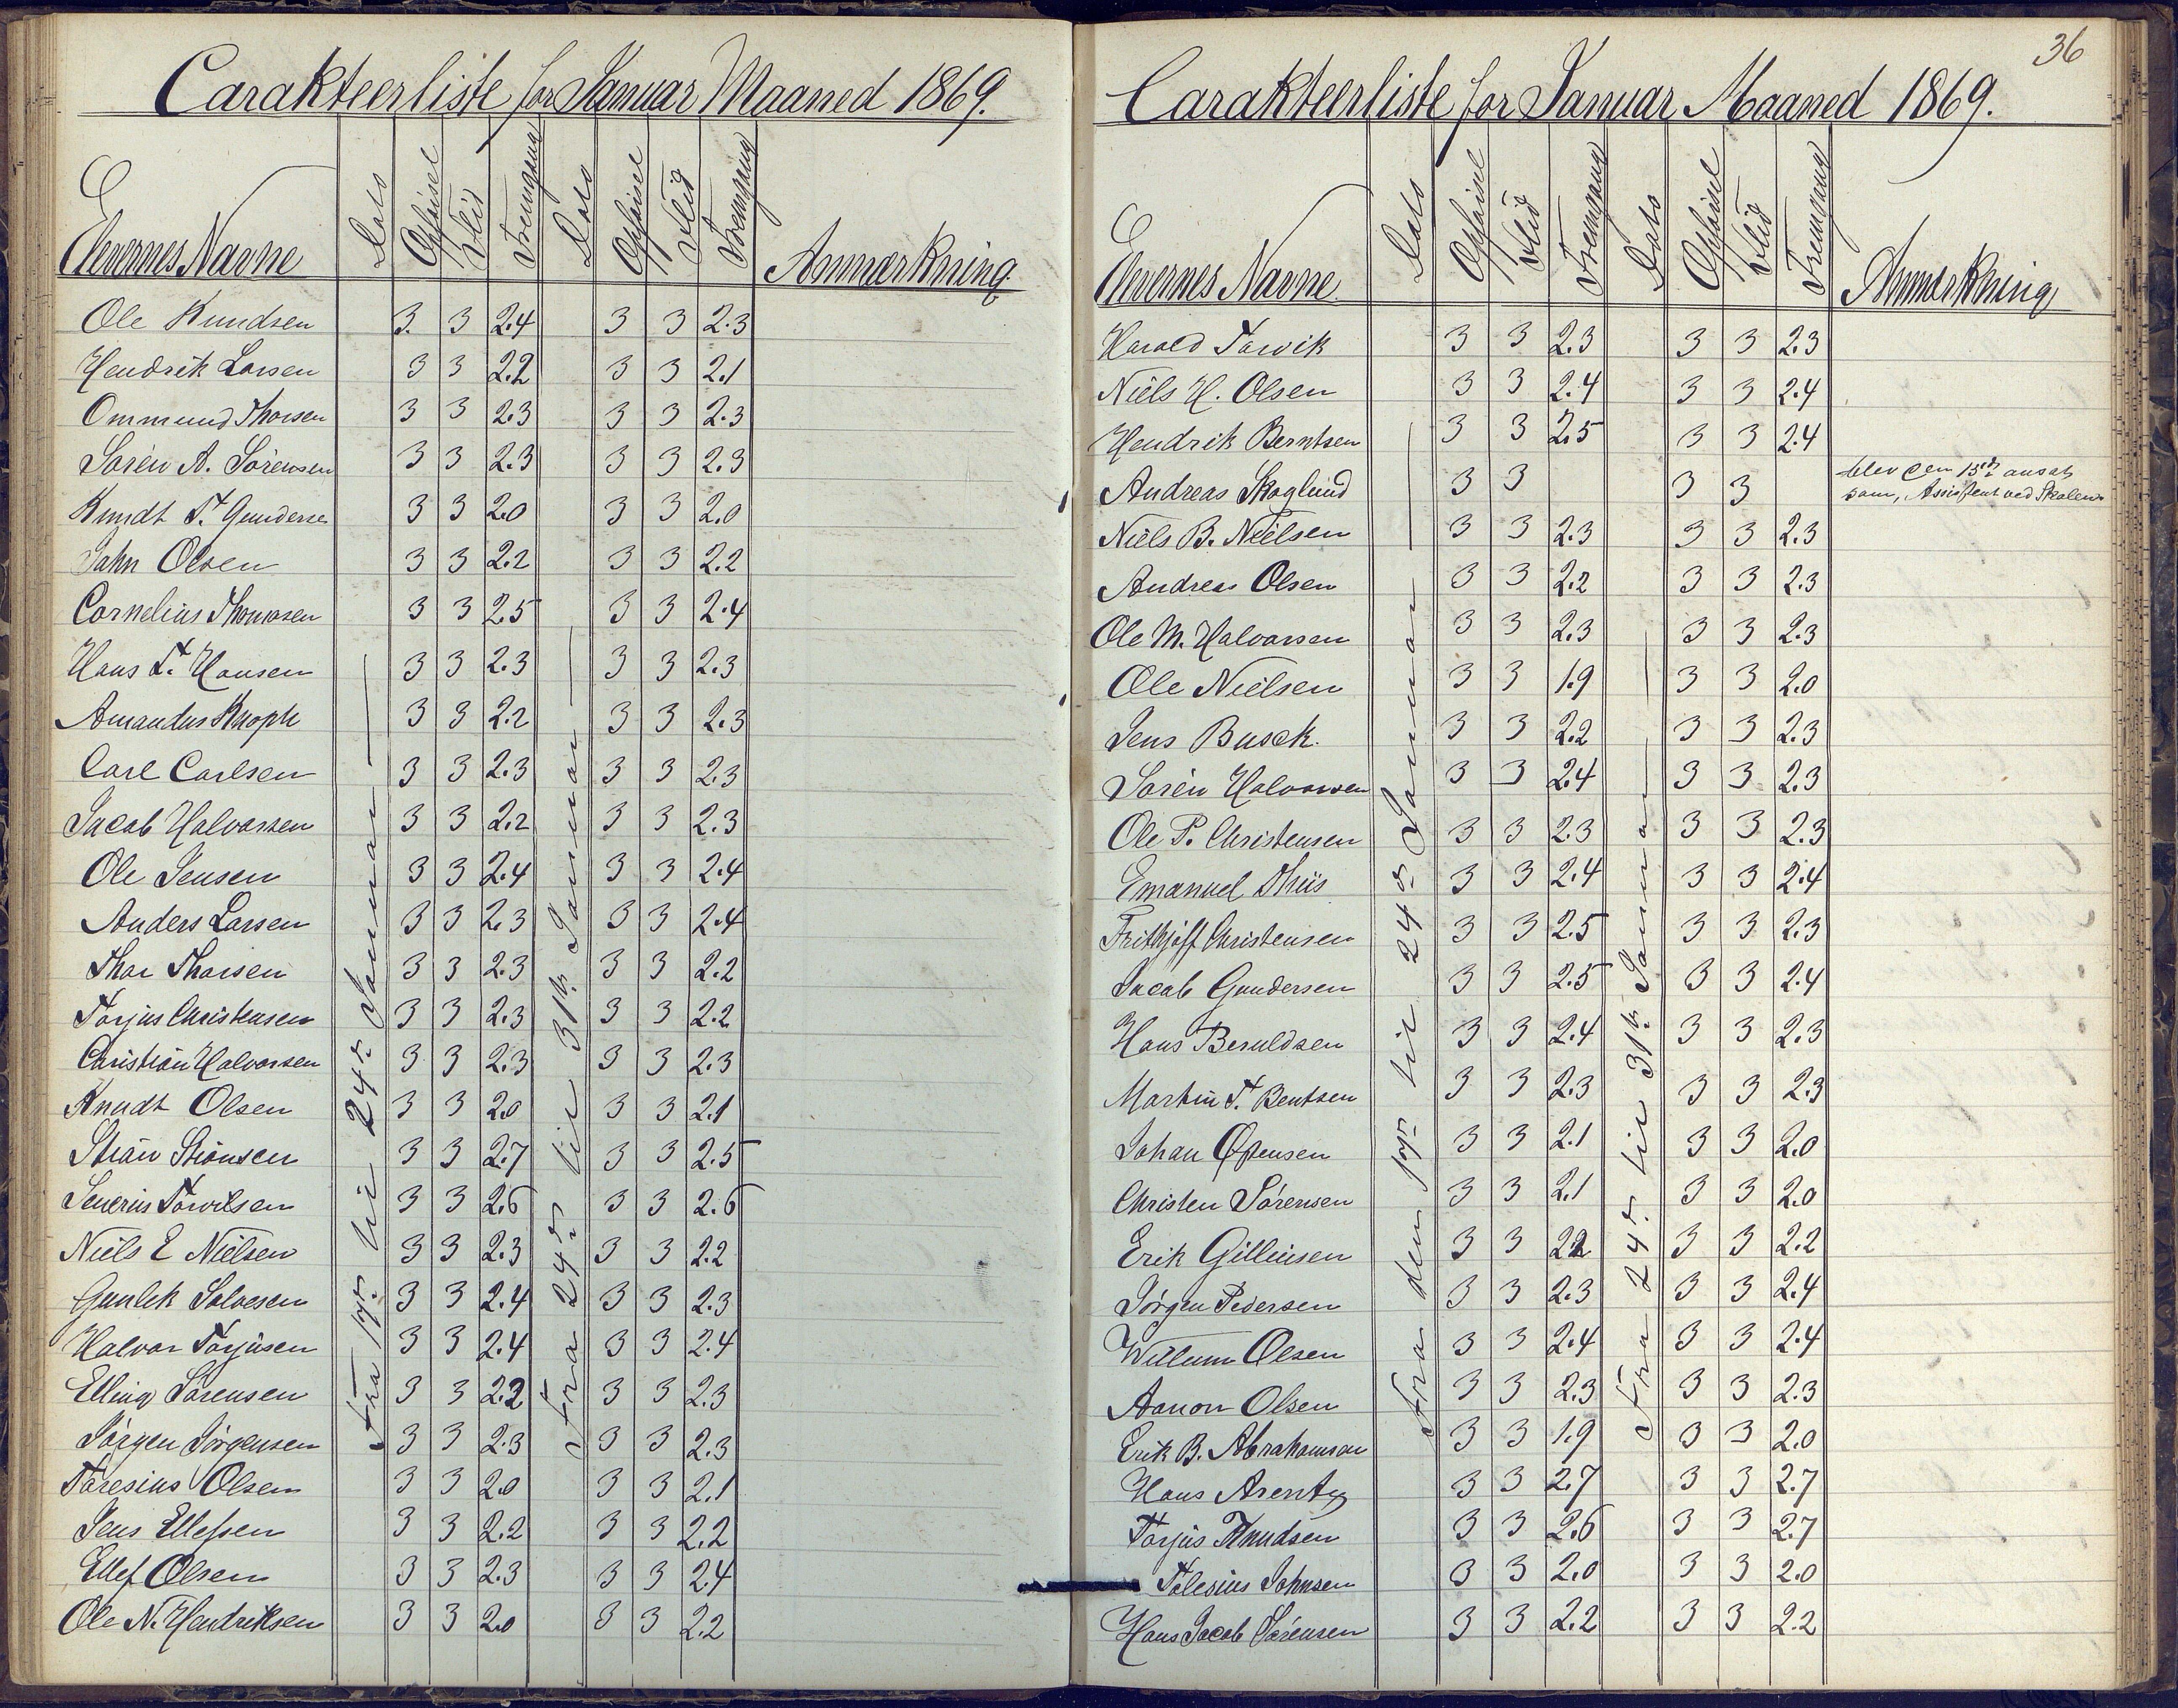 Carakteerliste for Januar Maaned 1869.
Elevernes Navne Dato Opførsel Flid Fremgang Dato Opførsel Flid Fremgang Anmærkning
Fra 17de til 24de Januar
Fra 24de til 31te Januar
Ole Knudsen 3. 3 2.4 3 3 2.3
Hendrik Larsen 3 3 2.2 3 3 2.1
Ommund Thorsen 3 3 2.3 3 3 2.3
Sören A. Sörensen 3 3 2.3 3 3 2.3
Knudt T. Gunderse 3 3 2.0 3 3 2.0
John Olsen 3 3 2.2 3 3 2.2
Cornelius Thomasen 3 3 2.5 3 3 2.4
Hans T. Hansen 3 3 2.3 3 3 2.3
Amandus Knoph 3 3 2.2 3 3 2.3
Carl Carlsen 3 3 2.3 3 3 2.3
Jacob Halvorsen 3 3 2.2 3 3 2.3
Ole Jensen 3 3 2.4 3 3 2.4
Anders Larsen 3 3 2.3 3 3 2.4
Thor Thorsen 3 3 2.3 3 3 2.2
Torjus Christensen 3 3 2.3 3 3 2.2
Christian Halvorsen 3 3 2.3 3 3 2.3
Knudt Olsen 3 3 2.0 3 3 2.1
3 3 2.7 3 3 2.5
Severin 3 3 2.6 3 3 2.6
Niels E Nielsen 3 3 2.3 3 3 2.2
Gunlek Solvesen 3 3 2.4 3 3 2.3
Halvor Torjusen 3 3 2.4 3 3 2.4
Elling Sörensen 3 3 2.2 3 3 2.3
Jörgen Jörgensen 3 3 2.3 3 3 2.3
Taresius Olsen 3 3 2.0 3 3 2.1
Jens Ellefsen 3 3 2.2 3 3 2.2
Ellef Olsen 3 3 2.3 3 3 2.4
Ole N. Hendriksen 3 3 2.0 3 3 2.2
36
Carakteerliste for Januar Maaned 1869.
Elevernes Navne Dato Opførsel Flid Fremgang Dato Opførsel Flid Fremgang Anmærkning
Fra den 17de til 24de Januar
Fra 24de til 31te Januar
Harald Torvik 3 3 2.3 3 3 2.3
Niels H. Olsen 3 3 2.4 3 3 2.4
Hendrik Berntsen 3 3 2.5 3 3 2.4
Andreas Skoglund 3 3 3 3 blev den 15de ansat
som, Assistent ved Skolen
Niels B. Nielsen 3 3 2.3 3 3 2.3
Andreas Olsen 3 3 2.2 3 3 2.3
Ole M. Halvorsen 3 3 2.3 3 3 2.3
Ole Nielsen 3 3 1.9 3 3 2.0
Jens Busck. 3 3 2.2 3 3 2.3
Sören Halvorsen 3 3 2.4 3 3 2.3
Ole P. Christensen 3 3 2.3 3 3 2.3
Emanuel Thiis 3 3 2.4 3 3 2.4
Frithjoft Christensen 3 3 2.5 3 3 2.3
Jacob Gundersen 3 3 2.5 3 3 2.4
Hans Beruldsen 3 3 2.4 3 3 2.3
Martin T. Bentsen 3 3 2.3 3 3 2.3
Johan 3 3 2.1 3 3 2.0
Christen Sörensen 3 3 2.1 3 3 2.0
Erik Gilleusen 3 3 2.2 3 3 2.2
Jörgen Pedersen 3 3 2.3 3 3 2.4
Willum Olsen 3 3 2.4 3 3 2.4
Aanon Olsen 3 3 2.3 3 3 2.3
Erik B. Abrahamson 3 3 1.9 3 3 2.0
Hans Arentz 3 3 2.7 3 3 2.7
Torjus Knudsen 3 3 2.6 3 3 2.7
Tolesius Johnsen 3 3 2.0 3 3 2.0
Hans Jacob Sörensen 3 3 2.2 3 3 2.2